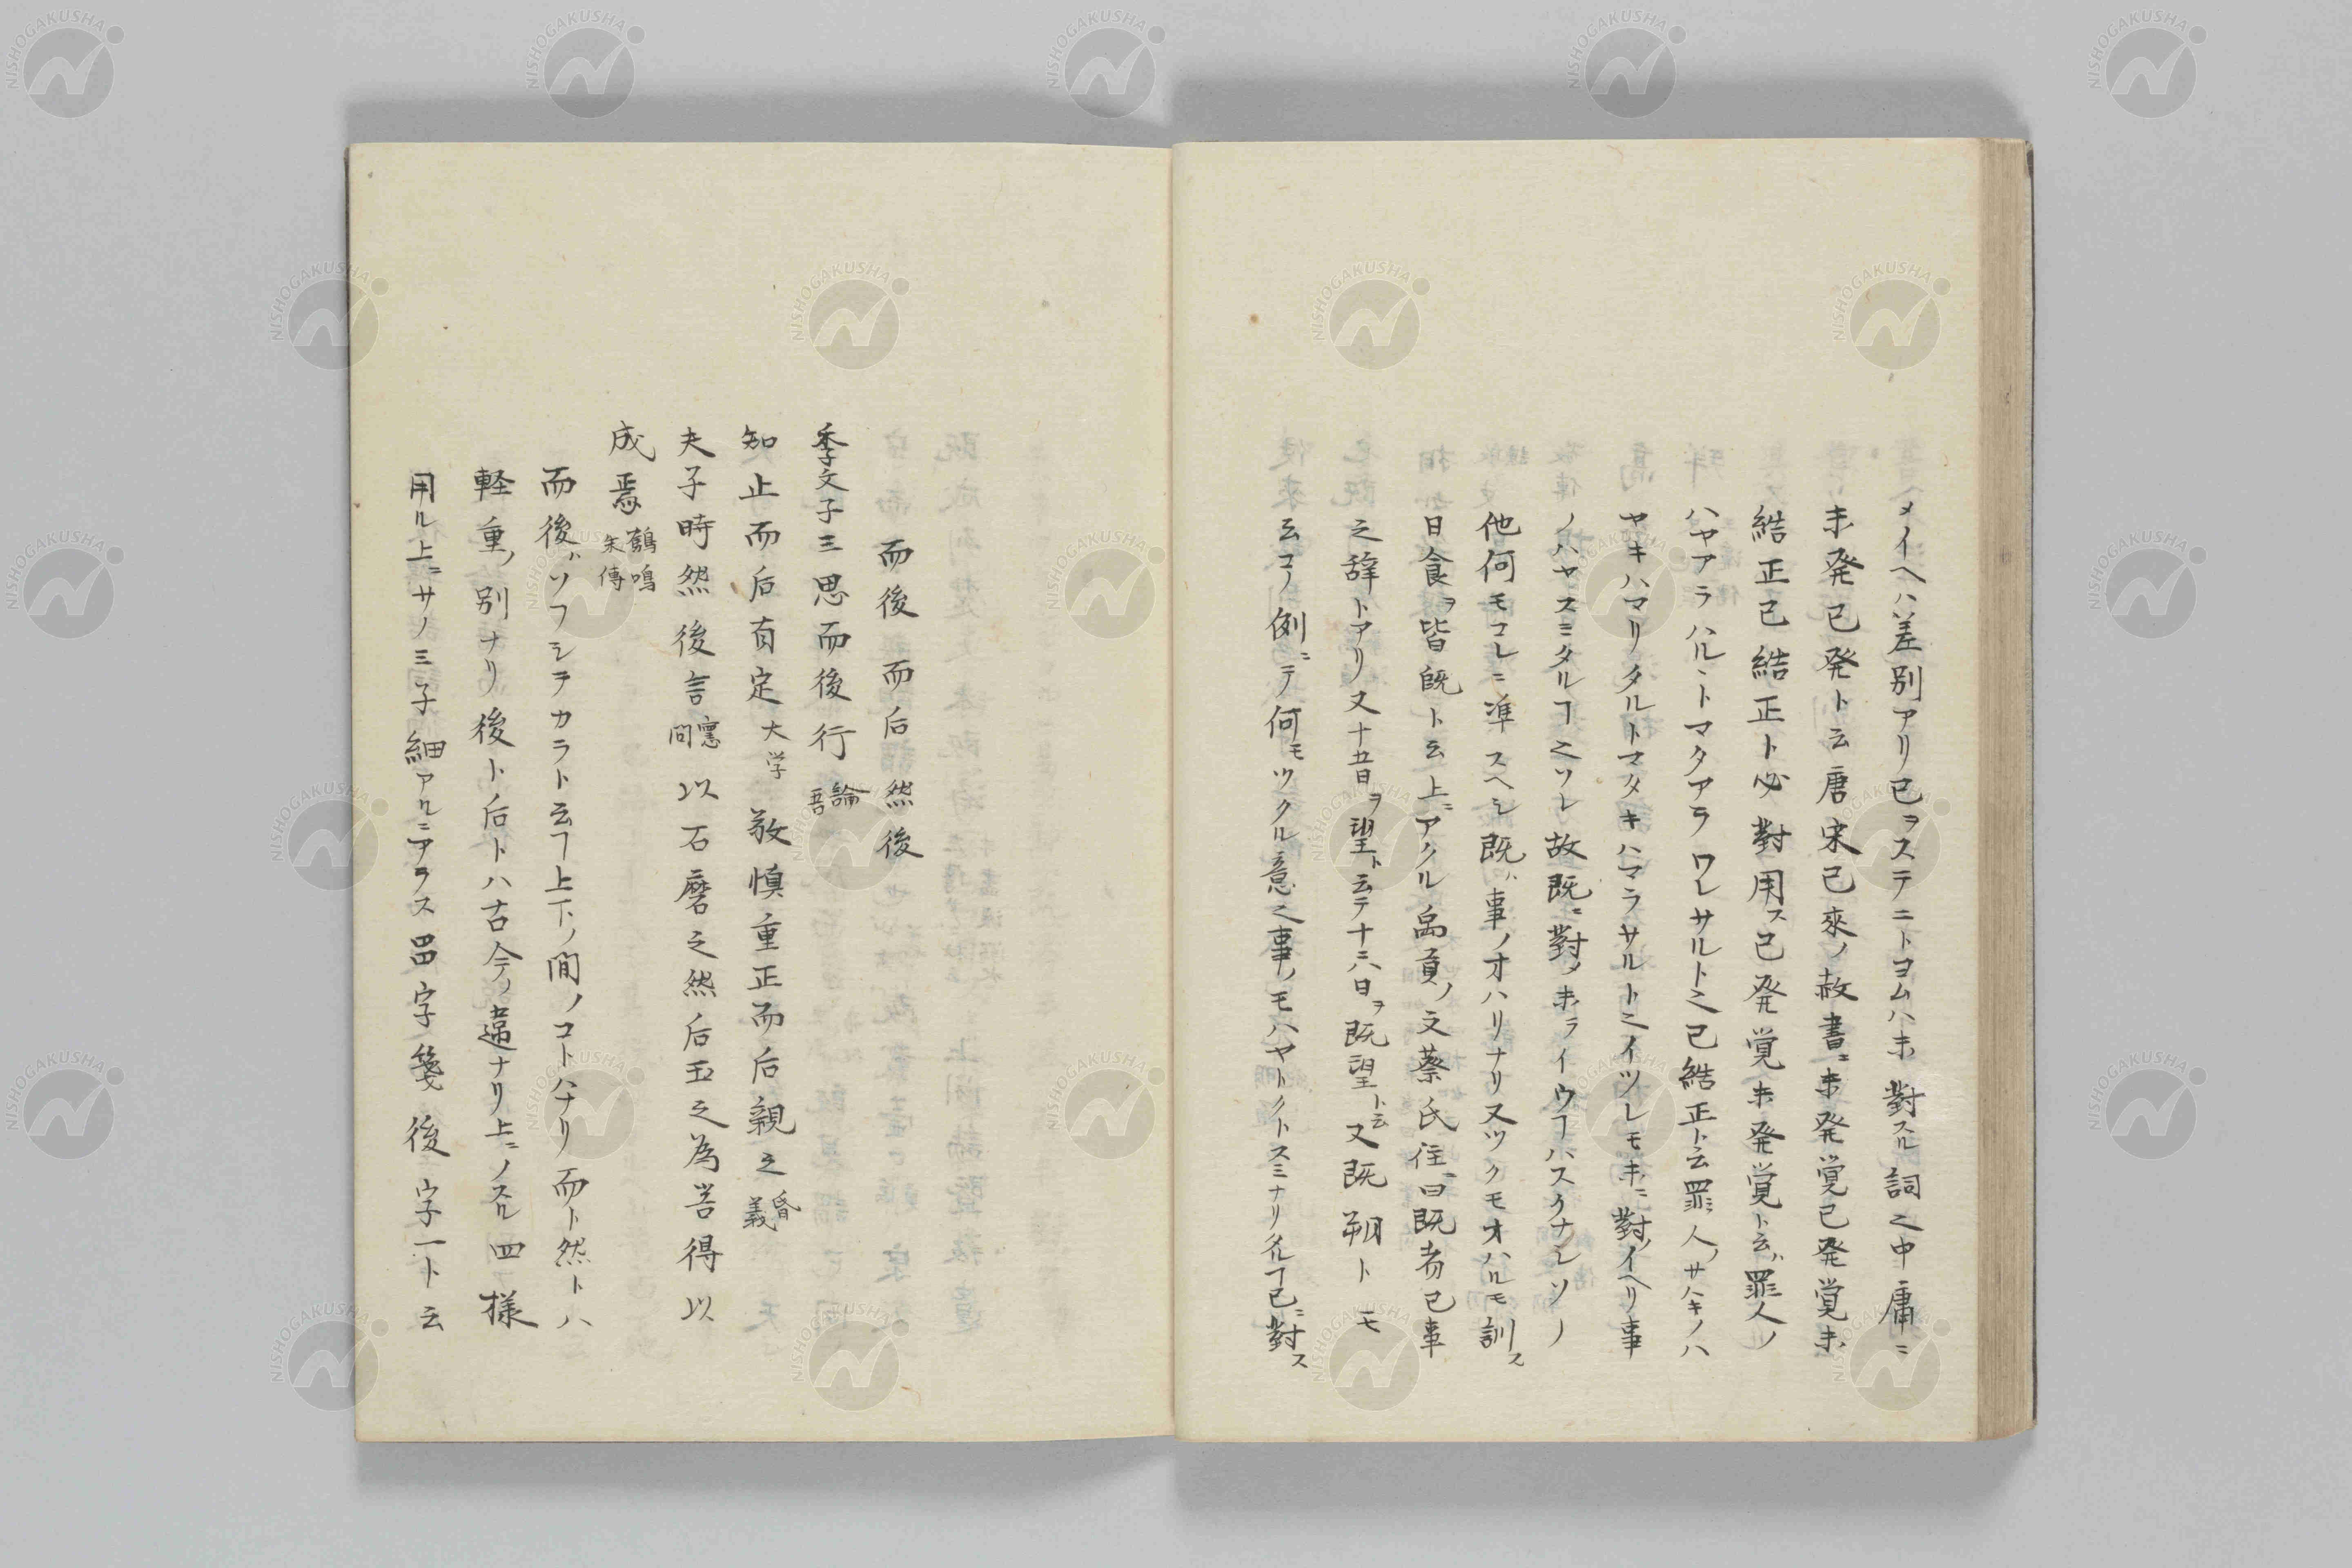 メイヘハ差別アリ已ヲステニトヨムハ未對スル詞之中庸ニ
未発已発ト云唐宋已來ノ赦書ニ未発覚已発覚未
結正已結正ト必對用ス已発覚未発覚ト云ハ罪人ノ
ハヤアラハルヽトマタアラワレサルト之已結正ト云罪人ノサハキノハ
ヤキハマリタルトマタキハマラサルト之イツレモ未ニ對ノイヘリ事
ノハヤスミタルヿ之ソレ故既ニ對タ未ライウヿハスクナシソノ
他何モコレニ準スヘシ既ハ事ノオハリナリ又ツクモオハルモ訓ス
日食ヲ皆既ト云上ニアクル禹貢ノ文蔡氏住ニ曰既者已事
之辞トアリ又十五日ヲ望ト云テ十六日ヲ既望ト云又既朔トモ
云コノ例ニテ何モツクル意之事ノモハヤトクトスミナリタルヿ已ニ對ス
而後 而后 然後
季文子三思而後行 論吾
知止而后有定 大学 敬慎重正而后親之 昏義
夫子時然後言 憲問 以石磨之然后玉之為器得以
成焉 鶴鳴朱傳
而後ハソフシテカラト云ヿ上下ノ間ノコトハナリ而ト然トハ
軽重ノ別ナリ後ト后トハ古今ノ違ナリ上ニノスル四様
用ル上ニサノミ子細アルニアラス助字箋後字一ト云